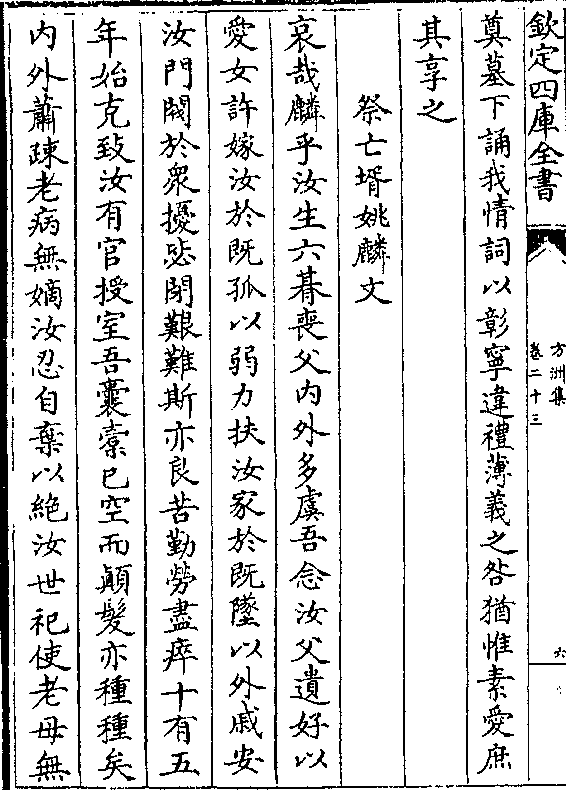 欽定四庫全書
方洲集
卷二十三
六
奠墓下誦我情詞以彰寧違禮薄義之咎猶惟素愛庶
其享之
祭亡壻姚麟文
哀哉麟乎汝生六朞喪父内外多虞吾念汝父遺好以
愛女許嫁汝於既孤以弱力扶汝家於既墜以外戚安
汝門閥於衆擾毖閉艱難斯亦良苦勤勞盡瘁十有五
年始克致汝有官授室吾囊橐已空而顛髮亦種種矣
内外蕭踈老病無嫡汝忍自棄以絶汝世祀使老母無